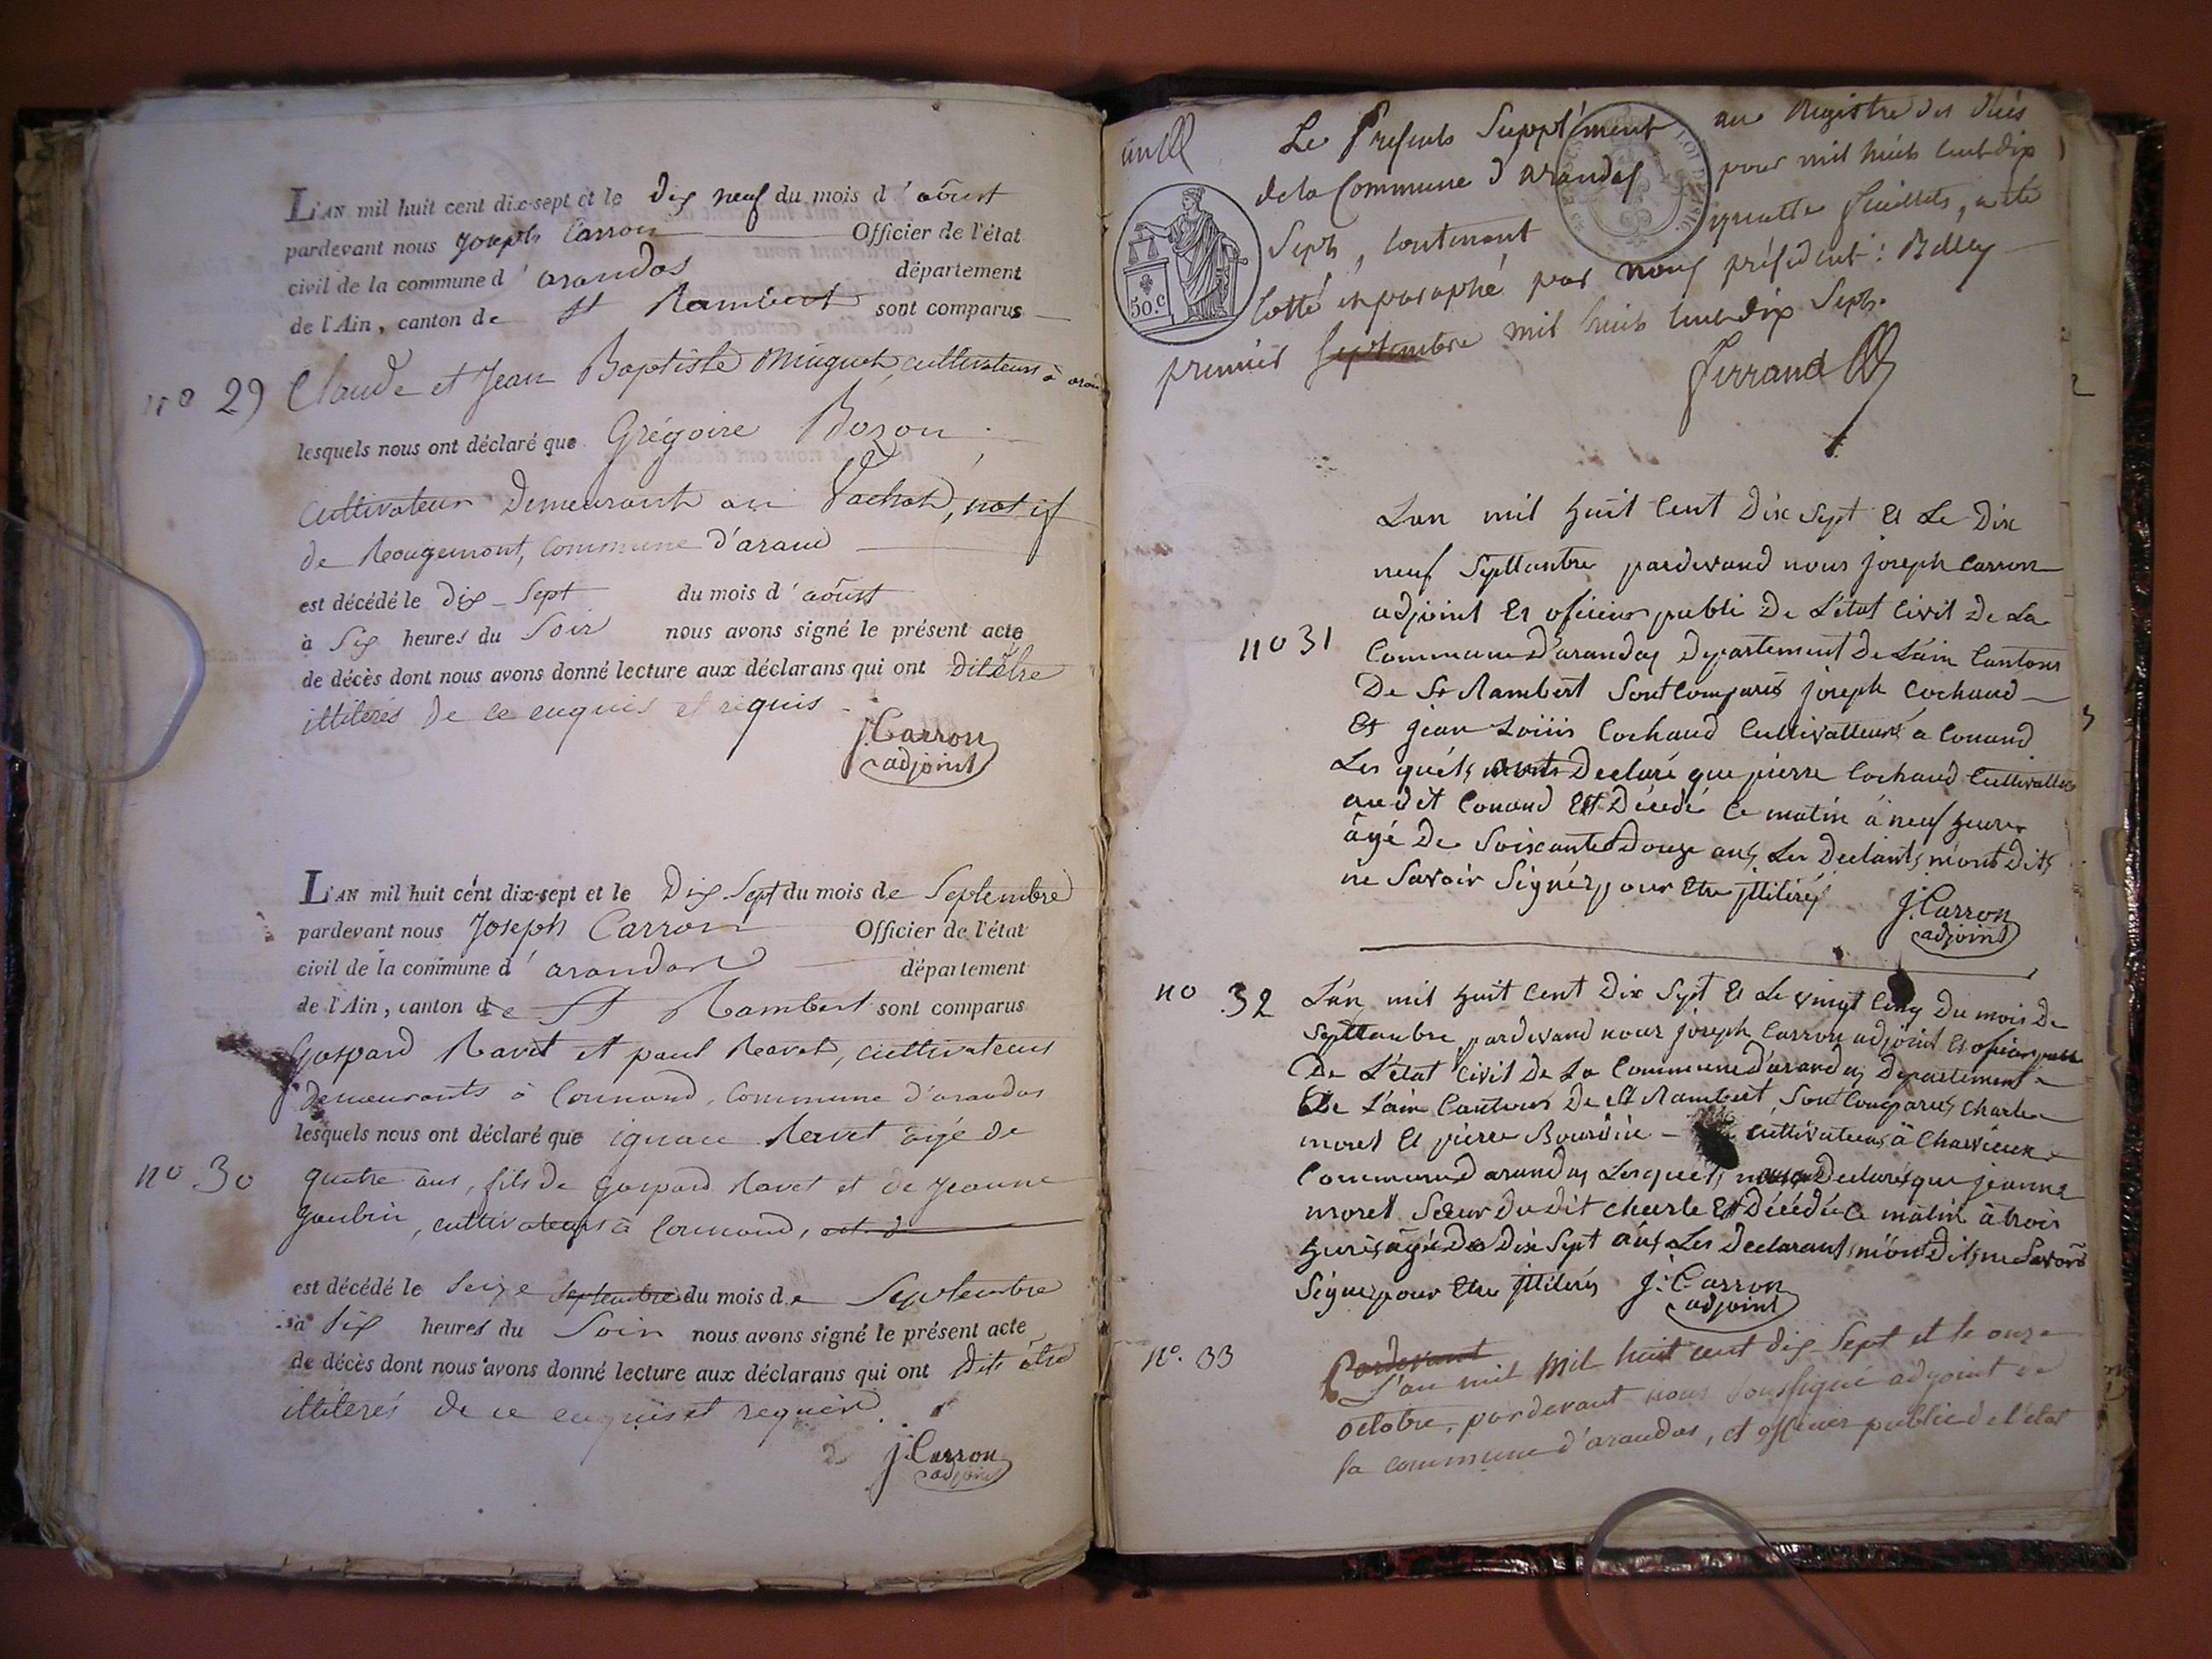 L'AN mil huit cent dix-sept et le dix neuf du mois d'aôust
pardevant nous joseph Carron Officier de l'état
civil de la commune d'arandas département
de l'Ain, canton de St Rambert sont comparus
n° 29 Claude et Jean Baptiste Minguet, cultivateurs à aran
lesquels nous ont déclaré que Grégoire Bozon
cultivateur demeurant au Vachat, natif
de Rougemont, commune d'arand
est décédé le dix-sept du mois d'aôust
à six heures du soir nous avons signé le présent acte
de décès dont nous avons donné lecture aux déclarans qui ont dit être
illiterés de ce enquis et requis
J. Carron
adjoint
L'AN mil huit cent dix-sept et le Dix Sept du mois de Septembre
pardevant nous Joseph Carron Officier de l'état
civil de la commune d'arandas département
de l'Ain, canton de St Rambert sont comparus
Gaspard Ravet et paul Ravet, cultivateurs
demeurants à Counand, commune d'arandas
lesquels nous ont déclaré que ignace Ravet âgé de
n° 30 quatre ans, fils de gaspard Ravet et de jeanne
, cultivateurs à Counand, est de
est décédé le seize septembre du mois de Septembre
à six heures du Soir nous avons signé le présent acte
de décès dont nous avons donné lecture aux déclarans qui ont dit être
illiterés de ce enquis et requis
j. Carron
adjoint
un
Le présents Supplément au Registre des décès
de la Commune d'arandas pour mil huit cent dix
Sept, contenant quatre feuillets, a été
Cotté et paraphé par nous président : Belley
premier septembre mil huit cent dix Sept.
Ferrand
50.c
Lan mil huit Cent Dix Sept Et Le Dix
neuf Septtantre pardevand nous joseph Carron
adjoint Et oficier publi De L'état Civil De La
n° 31 Commune D'arandas Departement De L'ain Cantons
De St Rambert Sont Comparus joseph Cochaud
Et jean Loüis Cochaud Cultivatteurs a Conand
Les quels Declaré que pierre Cochaud Cultivatteur
au dit Conand Est Décedé Ce matin á neuf heure
âgé De Soixante Douze ans, Les Declants, m'ont Dits
ne Savoir Signér, pour Etre illiterés
J. Carron
adjoint
n° 32 L'an mil huit Cent Dix Sept Et Le vingt Cinq Du mois De
Septtambre pardevand nous joseph Carron adjoint Et oficier
De L'état Civil De La Commune D'arandas Departement
De L'ain Cantons De St Rambert, Sont Comparus, Charle
moret Et pierre Bourdin - cultivateurs à Charvieux
Commune D'arandas Lesquels Declarés que jeanne
moret Sœur Du dit charle Est Décédée Ce matin â trois
heures agée De Dix Sept ans, Les Declarants m'ont Dits ne Savoir
Signer pour Etre illiterés J. Carron
adjoint
n°. 33 Pardevant
L'an mil Mil huit cent dix-sept et le onze
octobre, pardevant nous soussigné adjoint de
la commune d'arandas, et officier public de l'état